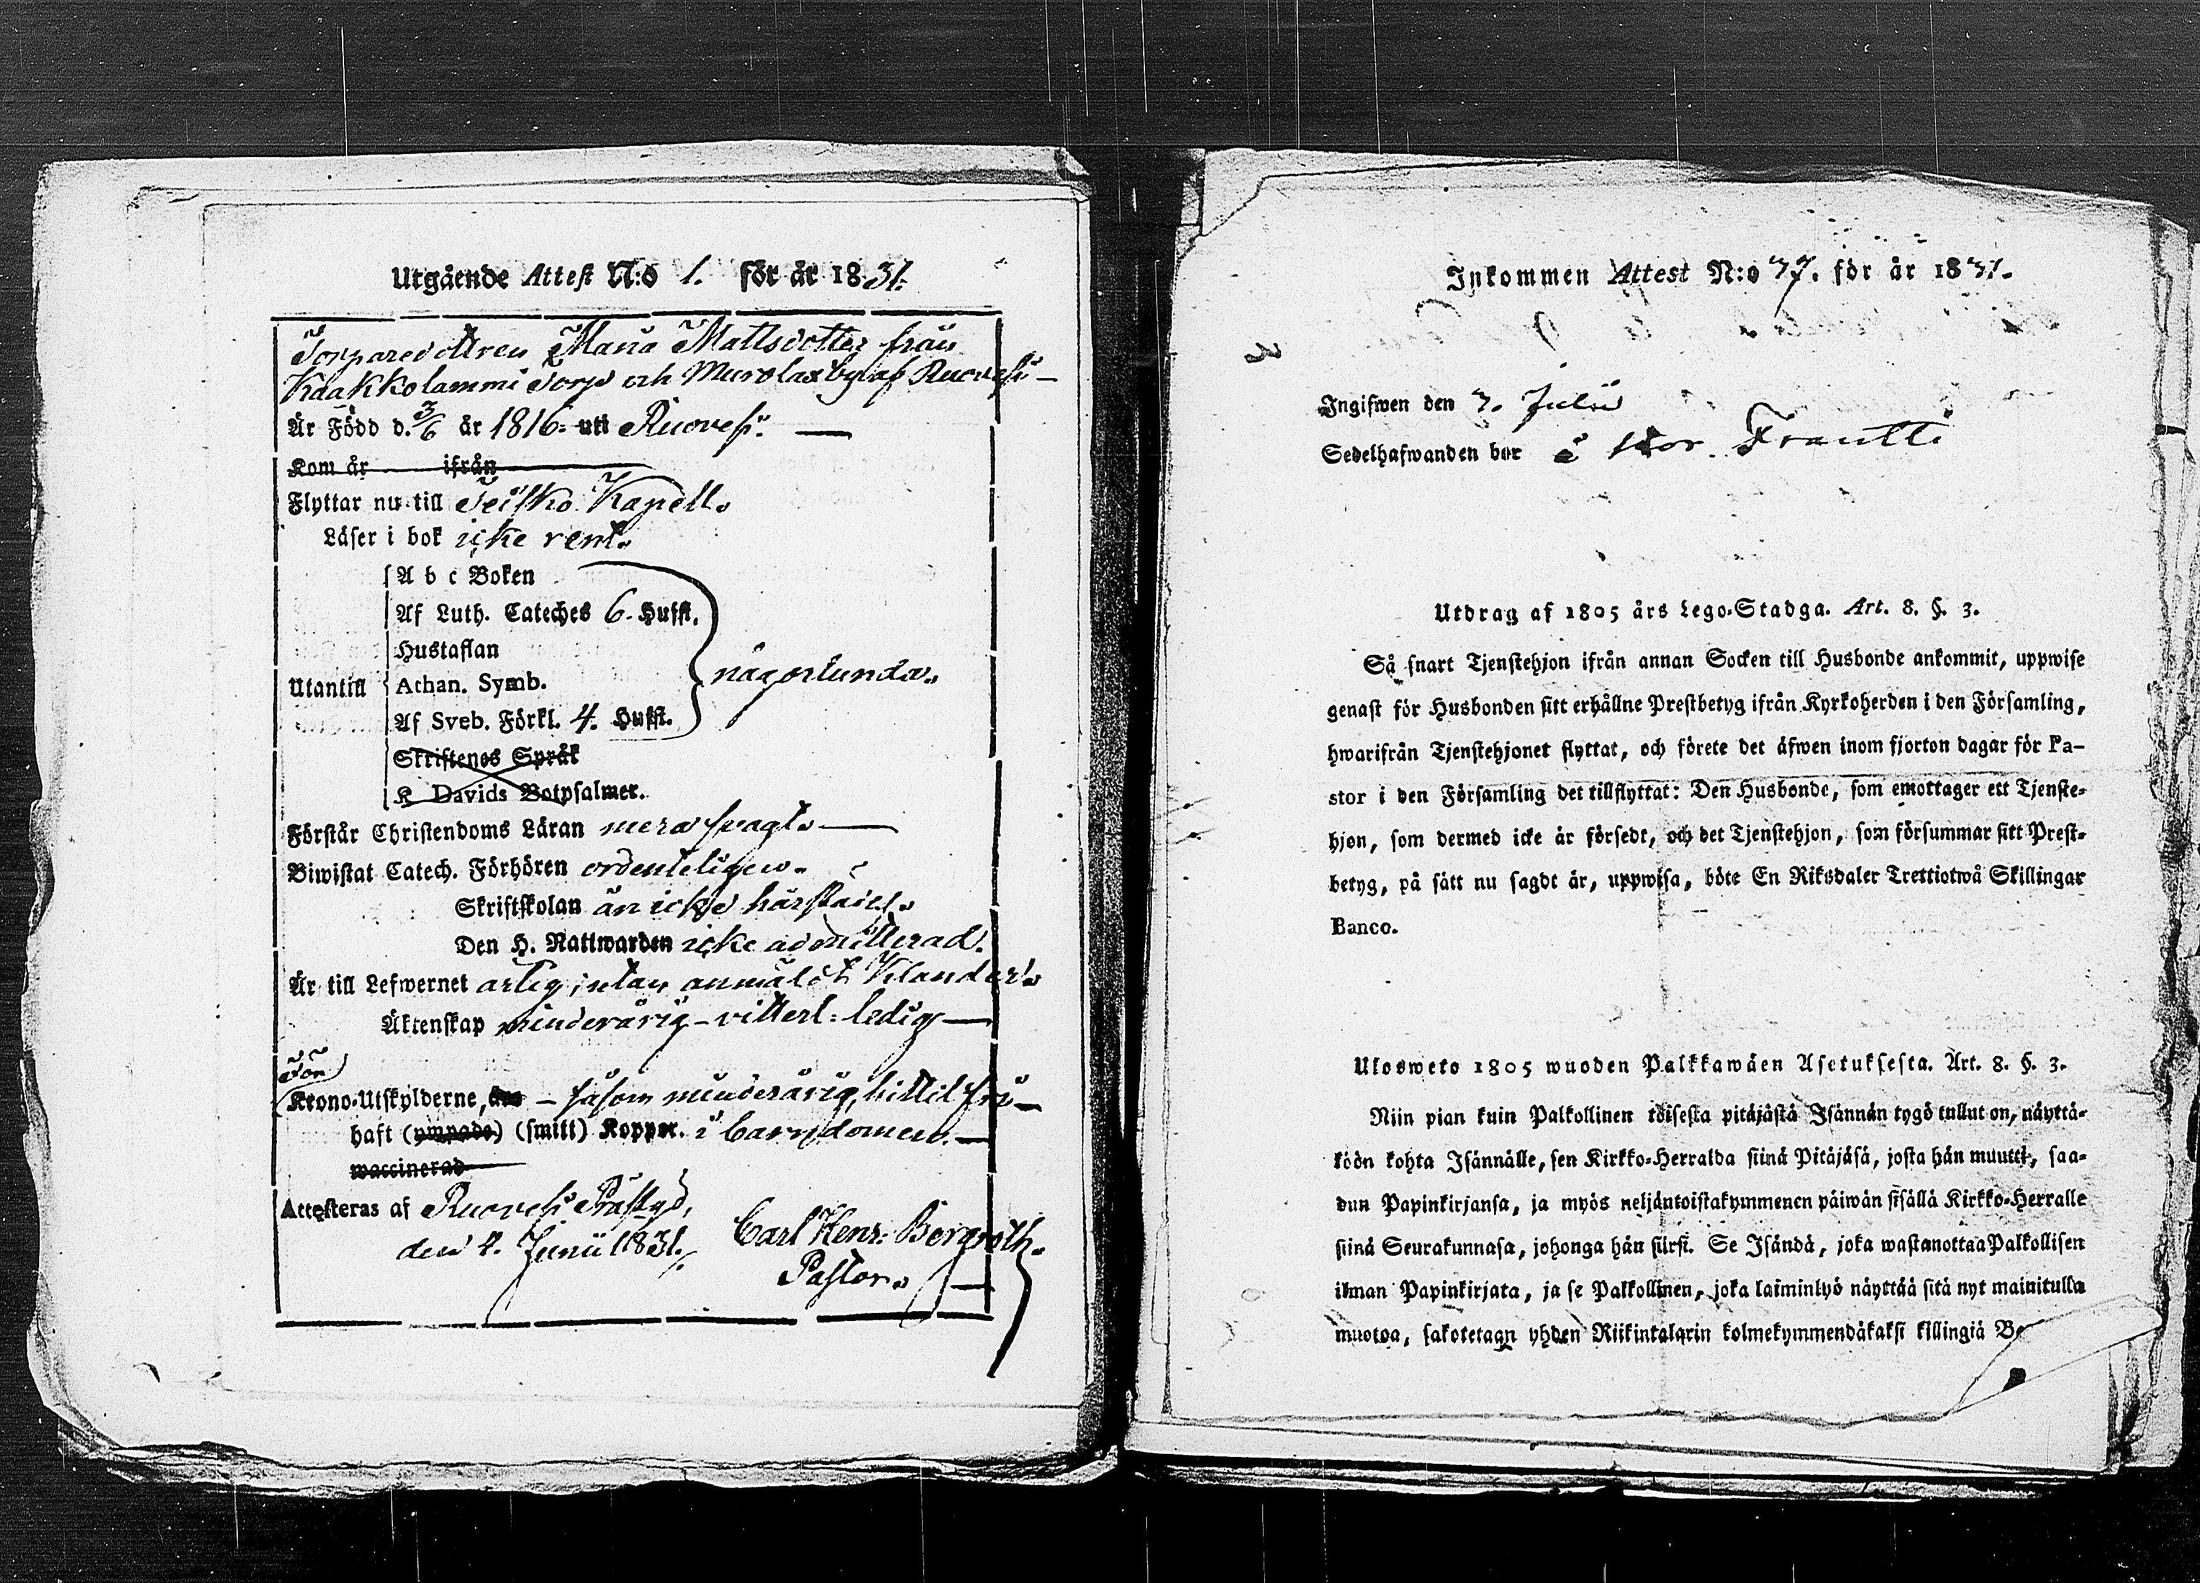 Utgående Attest N:o 1. för år 1831.
Torparedottren Maria Mattsdotter från
Kaakkolammi Torp och Murolax by af Ruovesi
Är Född d. 3/6 år 1816. uti Ruovesi.
Kom år ifrån
Flyttar nu till Teisko Kapell.
Läser i bok icke rent.
A b c Boken
Af Luth. Cateches 6. Hufst.
Hustaflan
Utantill Athan. Symb. någorlunda.
Af Sveb. Förkl. 4. Hufst.
Skriftenes Språk
K Davids Botpsalmer.
Förstår Christendoms Läran mera svagt.
Biwistat Catech. Förhören ordenteligen.
Skriftskolan än icke härstädes.
Den H. Nattwarden icke admitterad.
Är till Lefwernet artig, utan anmäldt Klander.
Äktenskap minderårig - vitterl: ledig
För
Krono-Utskylderne, - såsom minderårig, hittil fri
haft (ympade) (smitt) Koppor. i barndomen.
waccinerad
Attesteras af Ruovesi Prästgd,
den 4. Junii 1831. Carl Henr: Bergroth.
Pastor.
Inkommen Attest N:o 37. för år 1831.
Ingifwen den 3. Julii
Sedelhafwanden bor i Frantti
Utdrag af 1805 års Lego-Stadga. Art. 8. §. 3.
Så snart Tjenstehjon ifrån annan Socken till Husbonde ankommit, uppwise
genast för Husbonden sitt erhållne Prestbetyg ifrån Kyrkoherden i den Församling,
hwarifrån Tjenstehjonet flyttat, och förete det äfwen inom fjorton dagar för Pa-
stor i den Församling det tillflyttat: Den Husbonde, som emottager ett Tjenste-
hjon, som dermed icke är försedt, och det Tjenstehjon, som försummar sitt Prest-
betyg, på sätt nu sagdt är, uppwisa, böte En Riksdaler Trettiotwå Skillingar
Banco.
Ulosweto 1805 wuoden Palkkawäen Asetuksesta. Art. 8. §. 3.
Niin pian kuin Palkollinen toisesta pitäjästä Isännän tygö tullut on, näyttä-
köön kohta Isännälle, sen Kirkko-Herralda siinä Pitäjäsä, josta hän muutti, saa-
dun Papinkirjansa, ja myös neljäntoistakymmenen päiwän sisällä Kirkko-Herralle
siinä Seurakunnasa, johonga hän siirsi. Se Isändä, joka wastanottaa Palkollisen
ilman Papinkirjata, ja se Palkollinen, joka laiminlyö näyttää sitä nyt mainitulla
muotoa, sakotetaan yhden Riikintalarin kolmekymmendäkaksi killingiä